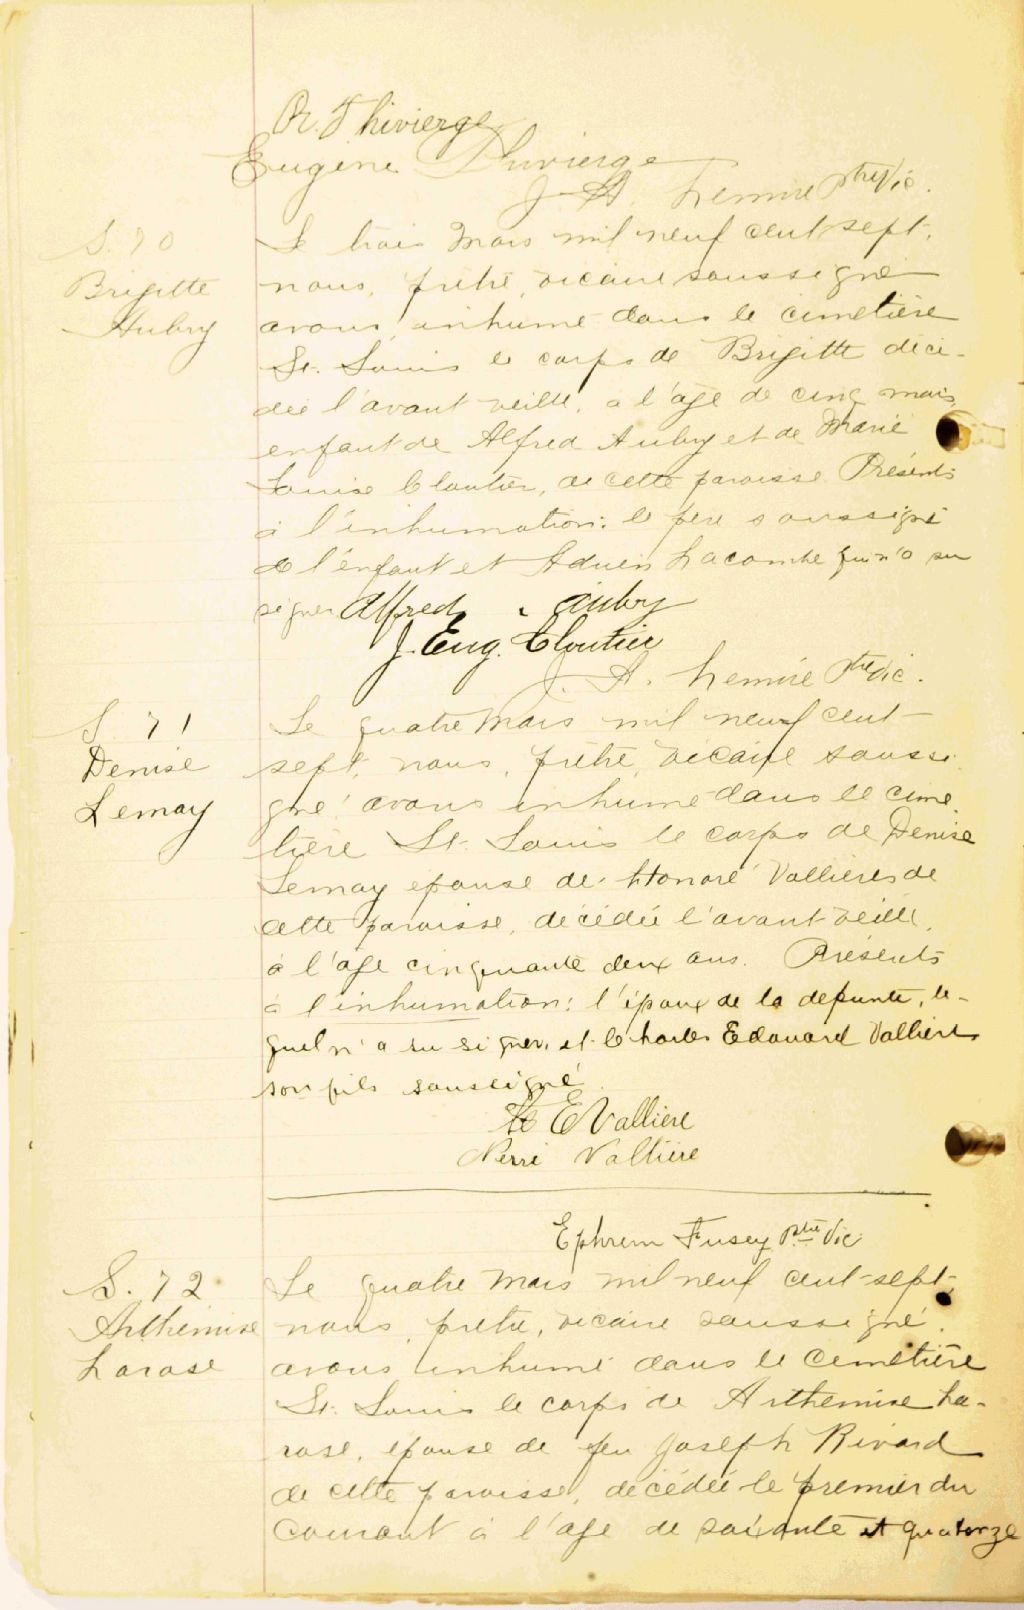 Or. Thivierge
Eugène Thivierge
J. A. Lemire Ptre Vic.
S. 70
Brigitte
Aubry
Le trois mars mil neuf cent sept,
nous, prêtre, vicaire soussigné
avons inhumé dans le cimetière
St. Louis le corps de Brigitte décé-
dée l'avant veille, à l'âge de cinq mois,
enfant de Alfred Aubry et de Marie
Louise Cloutier, de cette paroisse. Présents
à l'inhumation: le père soussigné
de l'enfant et Adrien Lacombe qui n'a su
signer Alfred Aubry
J. Eug. Cloutier
J. A. Lemire Ptre Vic.
S. 71
Denise
Lemay
Le quatre mars mil neuf cent-
sept, nous, prêtre, vicaire soussi-
gné avons inhumé dans le cime-
tière St. Louis le corps de Denise
Lemay épouse de Honoré Vallières de
cette paroisse, décédée l'avant veille,
à l'âge cinquante deux ans. Présents
à l'inhumation: l'époux de la defunte, le-
quel n'a su signer, et Charles Edouard Vallière
son fils soussigné.
Ch E Vallière
Nerré Vallière
Ephrem Fusey Ptre Vic
S. 72
Arthémise
Larose
Le quatre mars mil neuf cent-sept,
nous, prêtre, vicaire soussigné,
avons inhumé dans le cemetière
St. Louis le corps de Arthemise La-
rose, épouse de feu Joseph Rivard
de cette paroisse, décédée le premier du
courant à l'âge de soixante et quatorze